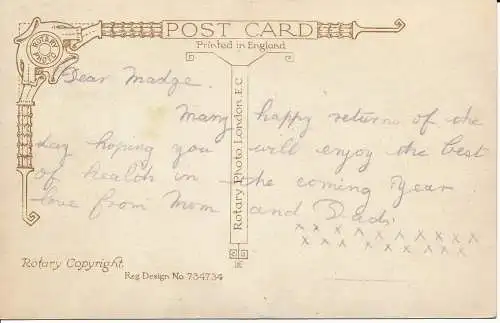 POST CARD
Printed in England
ROTARY PHOTO
Dear Madge.
Many happy returns of the
day hoping you will enjoy the best
of health in the coming Year
love from Mom and Dad.
x x x x x x x x x x
x x x x x x x x x
Rotary Photo London. E.C.
Rotary Copyright.
Reg. Design No. 734734